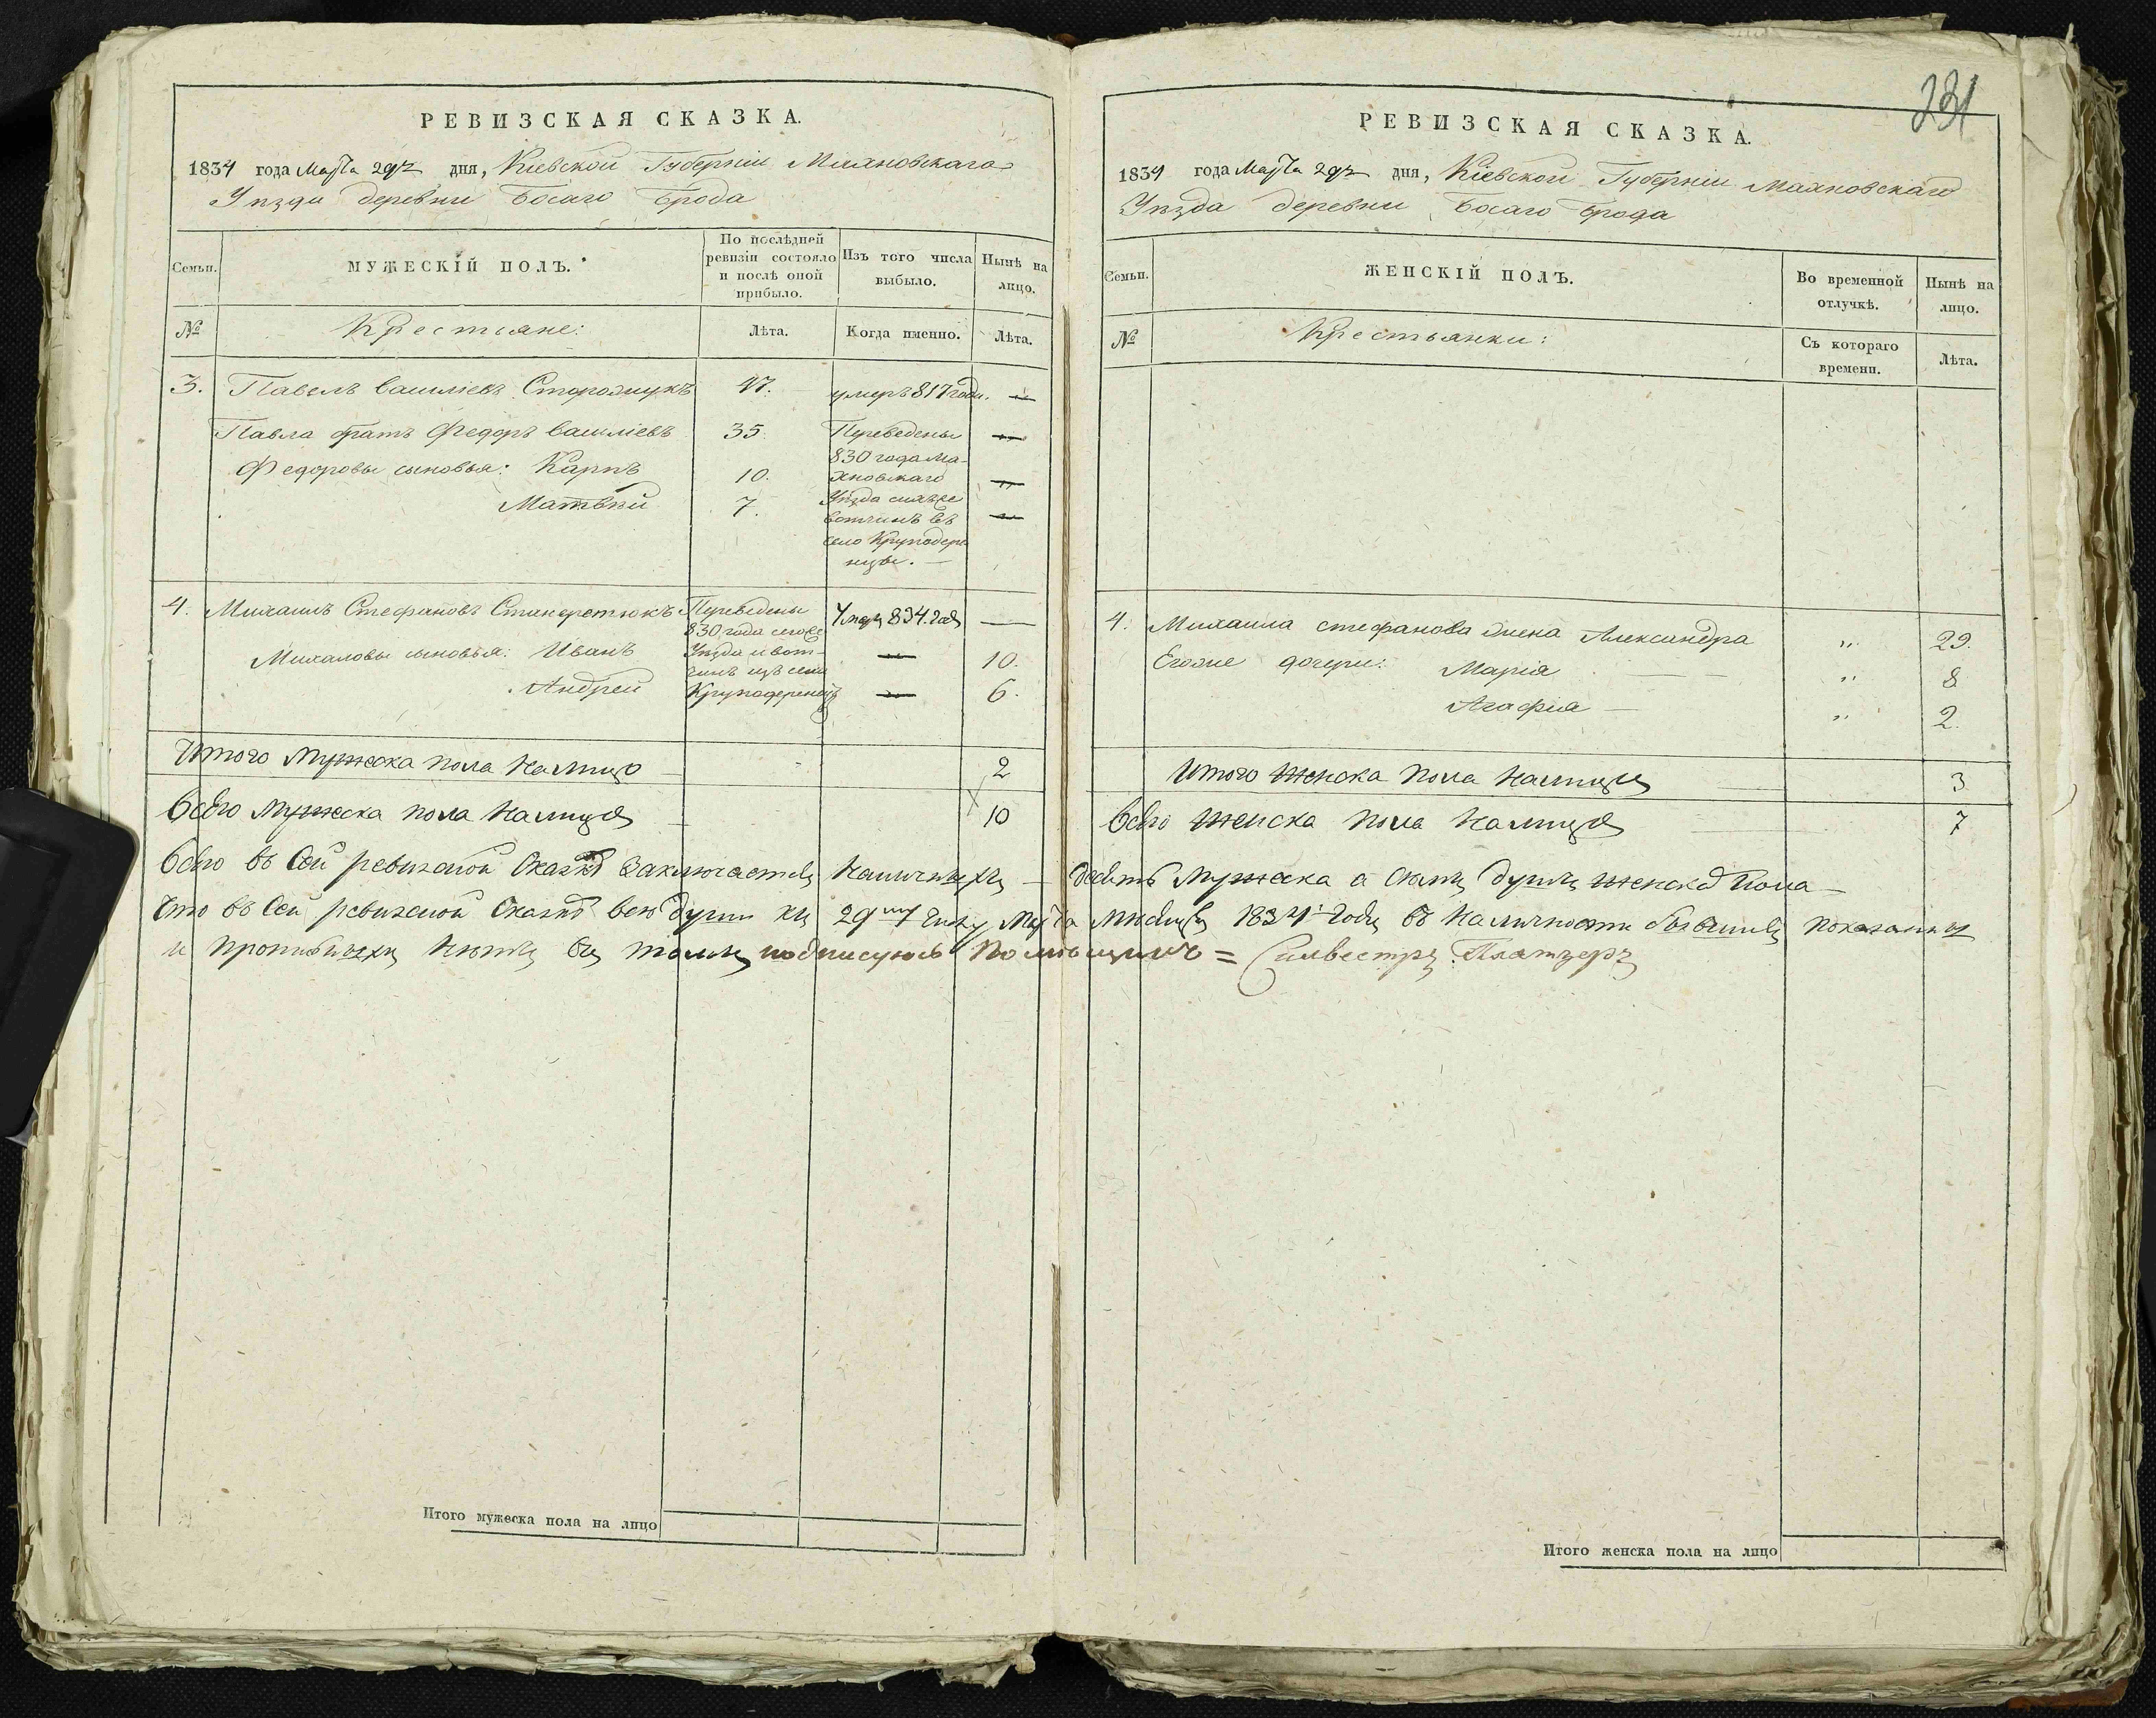 РЕВИЗСКАЯ СКАЗКА.
1834 года Марта 29 дня, Кіевской Губерніи Махновскаго
Уѣзда деревни Босаго Брода
Семьи.
МУЖЕСКІЙ ПОЛЪ.
По послѣдней
ревизіи состояло
и послѣ оной
прибыло.
Изъ того числа
выбыло.
Нынѣ на
лицо.
№
Крестьяне:
Лѣта.
Когда именно.
Лѣта.
3. Павелъ Василіевъ Сторожукъ 47. умеръ 817 года. —
Павла братъ Федоръ Василіевъ 35. Переведены —
830 года Ма-
Федоровы сыновья: Карпъ 10. хновскаго —
Матвѣй 7. Уѣзда
вотчинъ въ —
село Круподере
нцы. —
4. Михаилъ Стефановъ Переведены Умеръ 834. года —
830 года сегоже
Михаловы сыновья: Иванъ Уѣзда и вот- — 10.
чинъ изъ села
Андрей Круподеренецъ — 6.
Итого Мужеска пола Налицо 2
Всего Мужеска пола Налицо 10
РЕВИЗСКАЯ СКАЗКА.
231
1834 года Марта 29 дня, Кіевской Губерніи Махновскаго
Уѣзда деревни Босаго Брода
Семьи.
ЖЕНСКІЙ ПОЛЪ.
Во временной
отлучкѣ.
Нынѣ на
лицо.
№
Крестьянки:
Съ котораго
времени.
Лѣта.
4. Михаила стефанова жена Александра " 29.
Егоже дочери: Марія — " 8
Агафія — " 2.
Итого Женска пола Налицо 3
Всего Женска пола Налицо 7
Всего въ Сей ревизской Сказкѣ Заключается Наличныхъ — десять Мужеска а семъ душъ женска Пола —
Что въ Сей ревизской Сказкѣ всѣ души къ 29му числу Марта Мѣсяца 1834 года въ Наличности бывшія показаны
и прописныхъ нѣтъ въ томъ подписуюсь Помѣщикъ = Силвестръ Платеръ
Итого мужеска пола на лицо
Итого женска пола на лицо